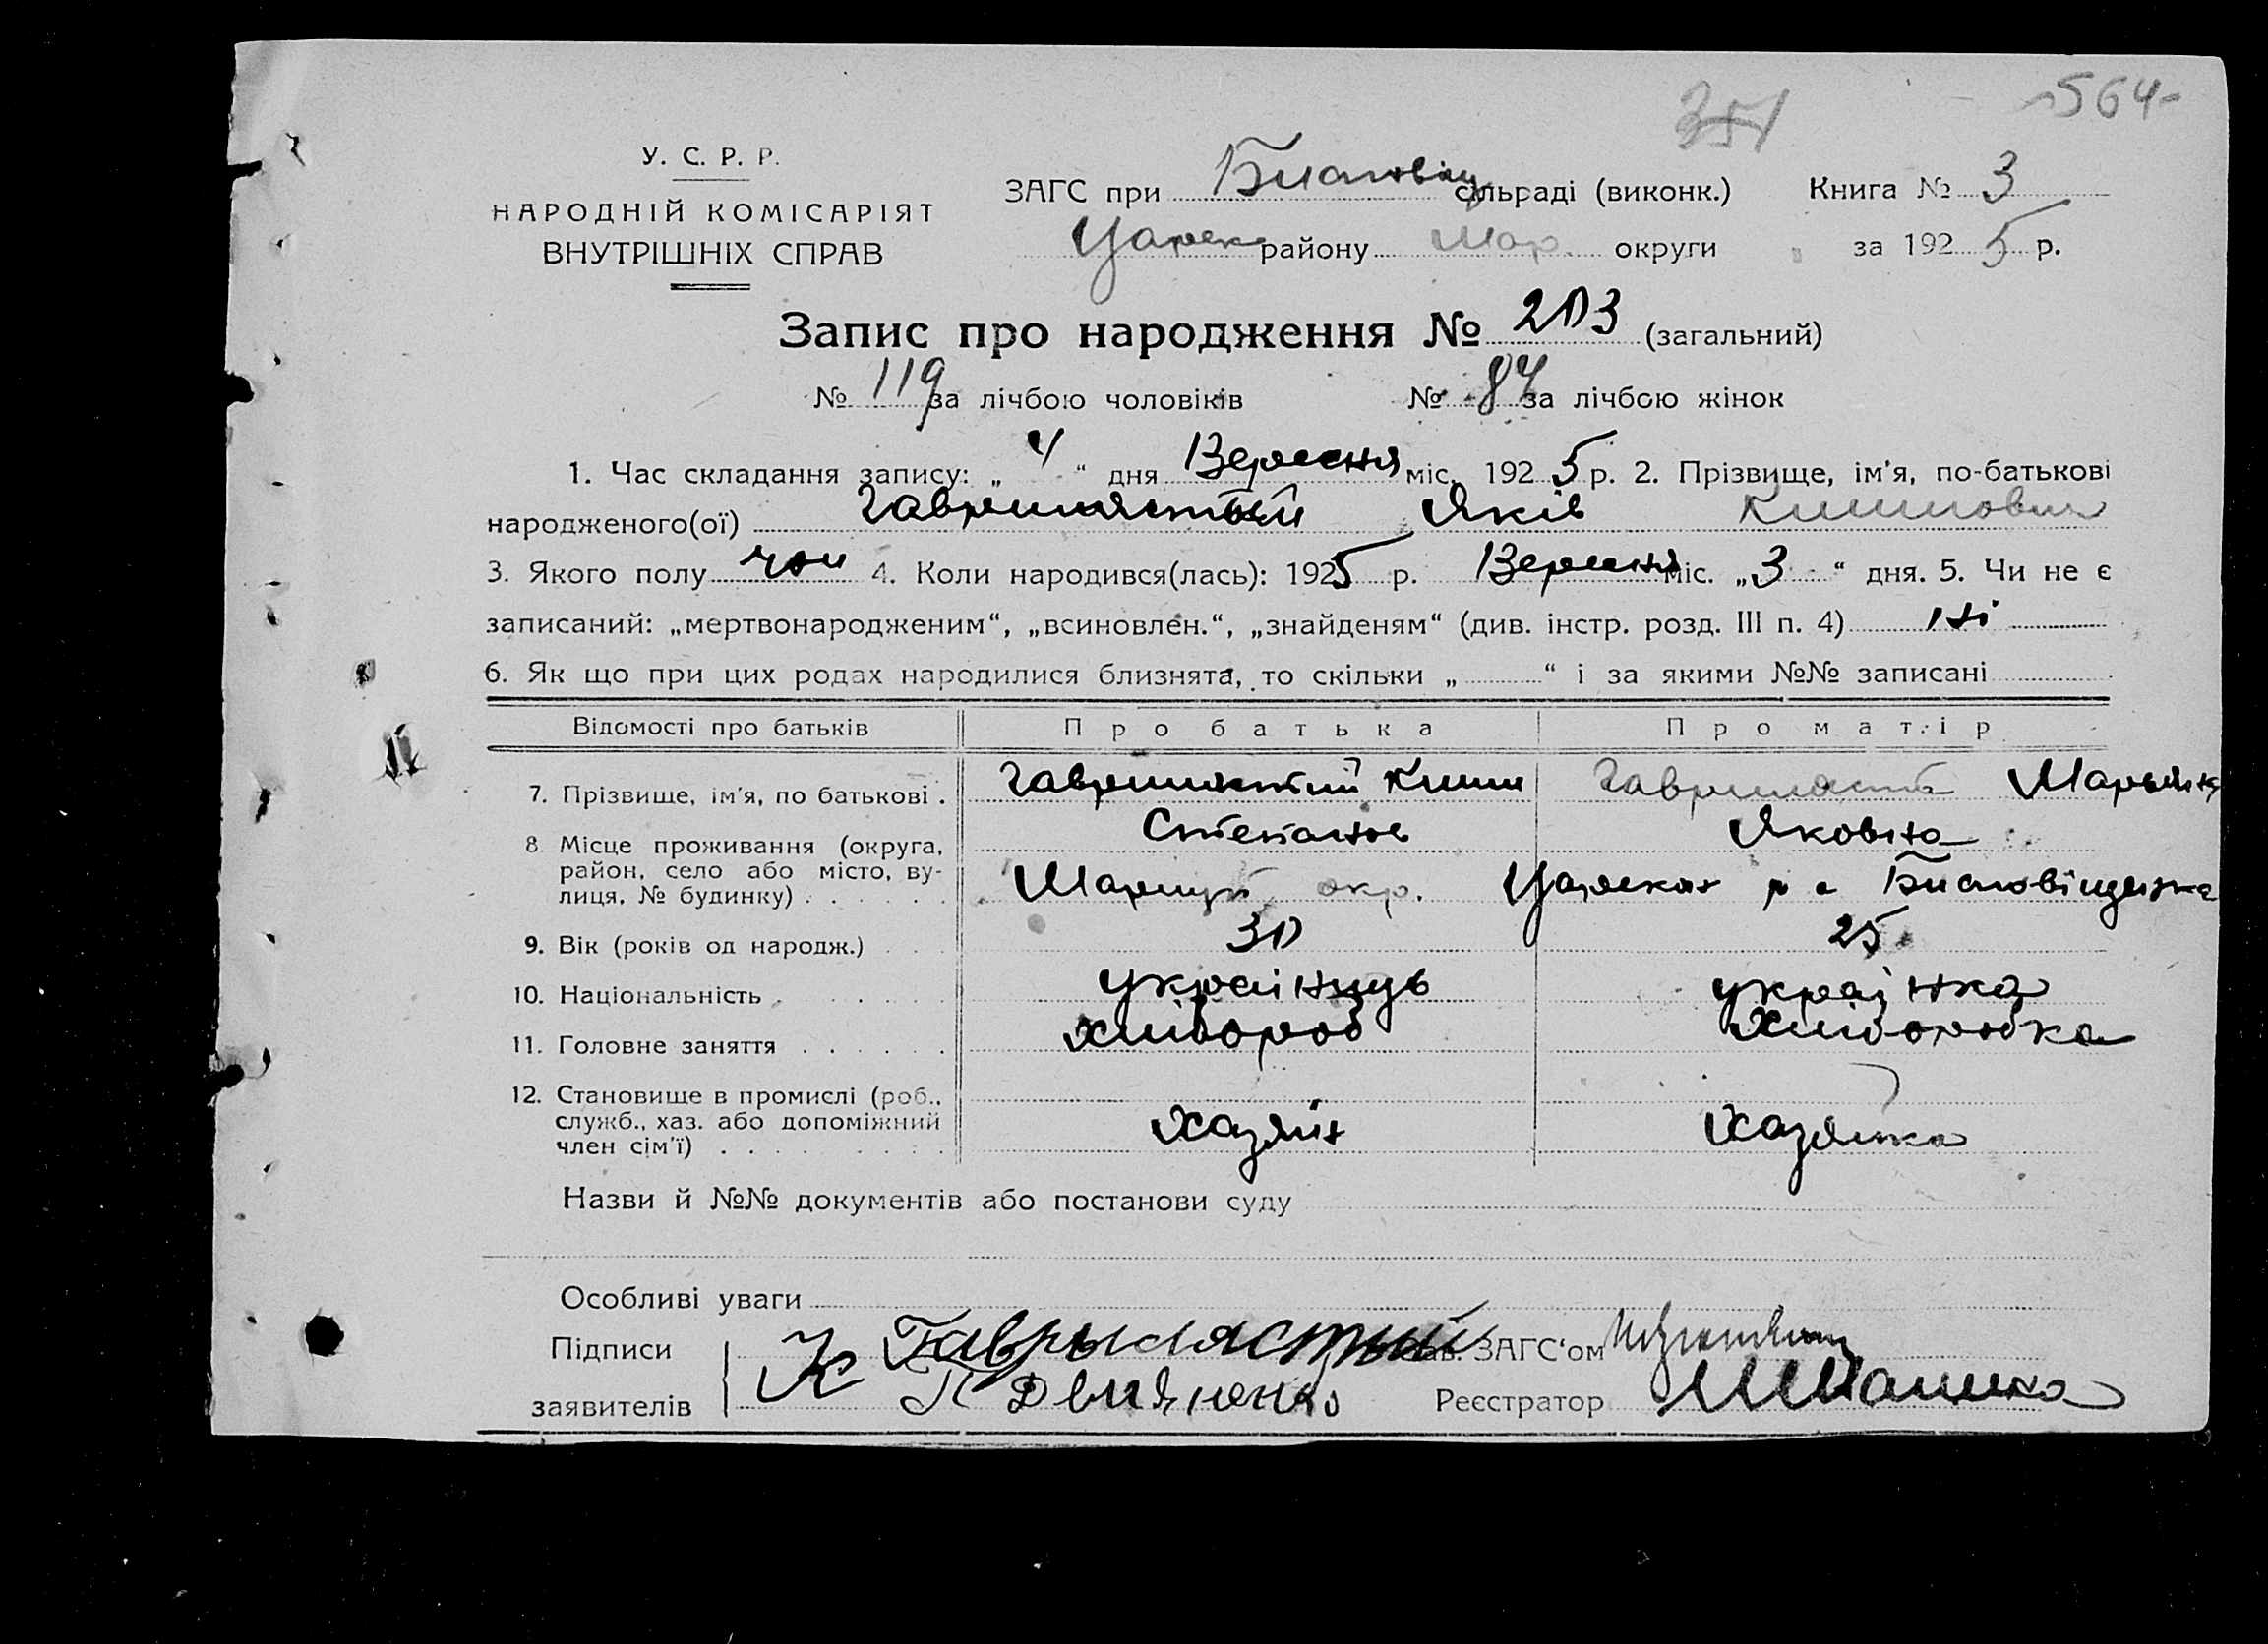 351 564-
У. С. Р. Р.
НАРОДНІЙ КОМІСАРІЯТ
ВНУТРІШНІХ СПРАВ
ЗАГС при сільраді (виконк.) Книга № 3
Царек району Мар. округи за 1925 р.
Запис про народження № 203 (загальний)
№ 119 за лічбою чоловіків № 84 за лічбою жінок
1. Час складання запису: „ 4 “ дня Вересня міс. 1925 р. 2. Прізвище, ім'я, по-батькові
народженого(ої) Гаврилястый Яків Климович
3. Якого полу чол 4. Коли народився(лась): 1925 р. Вересня міс. „3“ дня. 5. Чи не є
записаний: „мертвонародженим“, „всиновлен.“, „знайденям“ (див. інстр. розд. III п. 4) ні
6. Як що при цих родах народилися близнята, то скільки „ “ і за якими №№ записані
Відомості про батьків Про батька Про матір
7. Прізвище, ім'я, по батькові . Гаврилястий Клим Гавриляста Марьяна
Степанов Яковна
8. Місце проживання (округа,
район, село або місто, ву-
лиця, № будинку) . . . . . . Маріуп окр. Царекон р
9. Вік (років од народж.) . . . 30 25
10. Національність . . . . . . українць українка
11. Головне заняття . . . . . хлібороб хліборобка
12. Становище в промислі (роб.,
служб., хаз. або допоміжний
член сім'ї) . . . . . . . . . Хазяін Хазяйка
Назви й №№ документів або постанови суду
Особливі уваги
Підписи К Гаврылястый Зав. ЗАГС‘ом
заявителів П Реєстратор